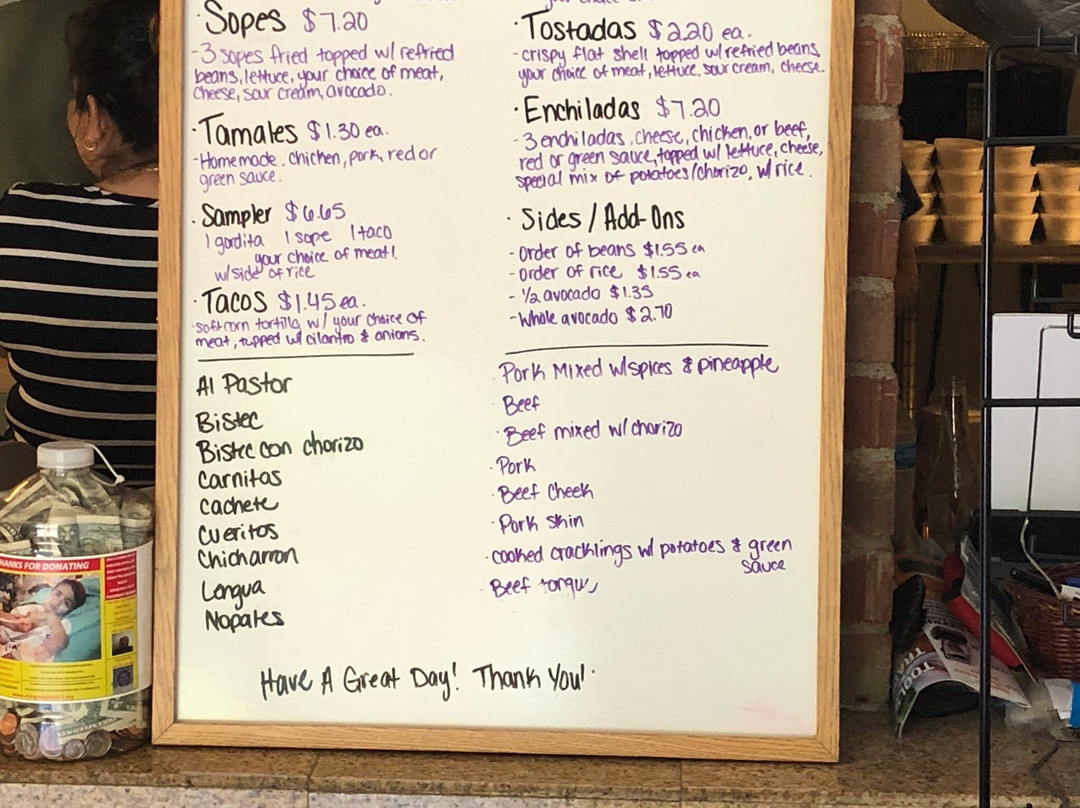 · Sopes $7.20
-3 sopes fried topped w/ refried
beans, lettuce, your choice of meat,
cheese, sour cream, avocado.
· Tamales $1.30 ea.
-Homemade. chicken, pork, red or
green sauce.
· Sampler $6.65
1 gordita 1 sope 1 taco
your choice of meat!
w/side of rice
· Tacos $1.45 ea.
·soft corn tortilla w/ your choice of
meat, topped w/ cilantro & onions.
· Tostadas $2.20 ea.
- crispy flat shell topped w/ refried beans
your choice of meat, lettuce, sour cream, cheese
· Enchiladas $7.20
- 3 enchiladas, cheese, chicken, or beef,
red or green sauce, topped w/ lettuce, cheese,
special mix of potatoes/chorizo, w/ rice.
· Sides / Add-Ons
- Order of beans $1.55 ea
- Order of rice $1.55 ea
- 1/2 avocado $1.35
- Whole avocado $2.70
Al Pastor
· Pork Mixed w/spices & pineapple
Bistec
· Beef
Bistec con chorizo
· Beef mixed w/ chorizo
Carnitas
· Pork
Cachete
· Beef Cheek
Cueritos
· Pork Skin
Chicharron
· cooked cracklings w/ potatoes & green
sauce
Lengua
· Beef tongue
Nopales
Have A Great Day! Thank You!
THANKS FOR DONATING